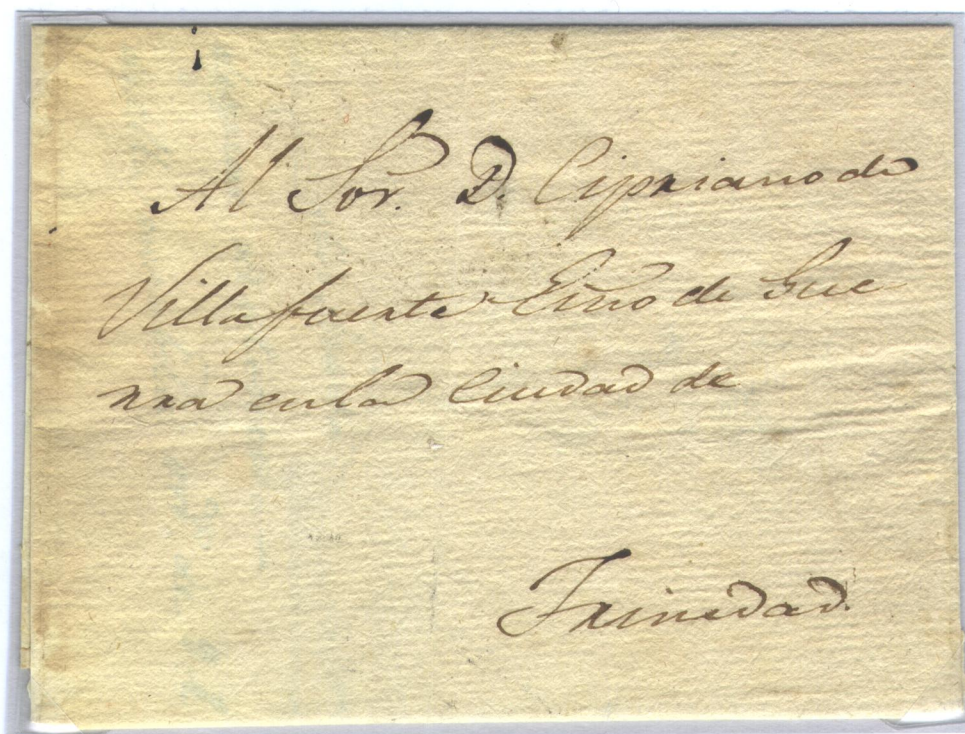 Al Sor. D. Cipriano de
Villafuerte Esno de Gue
rra en la Ciudad de
Trinedad.